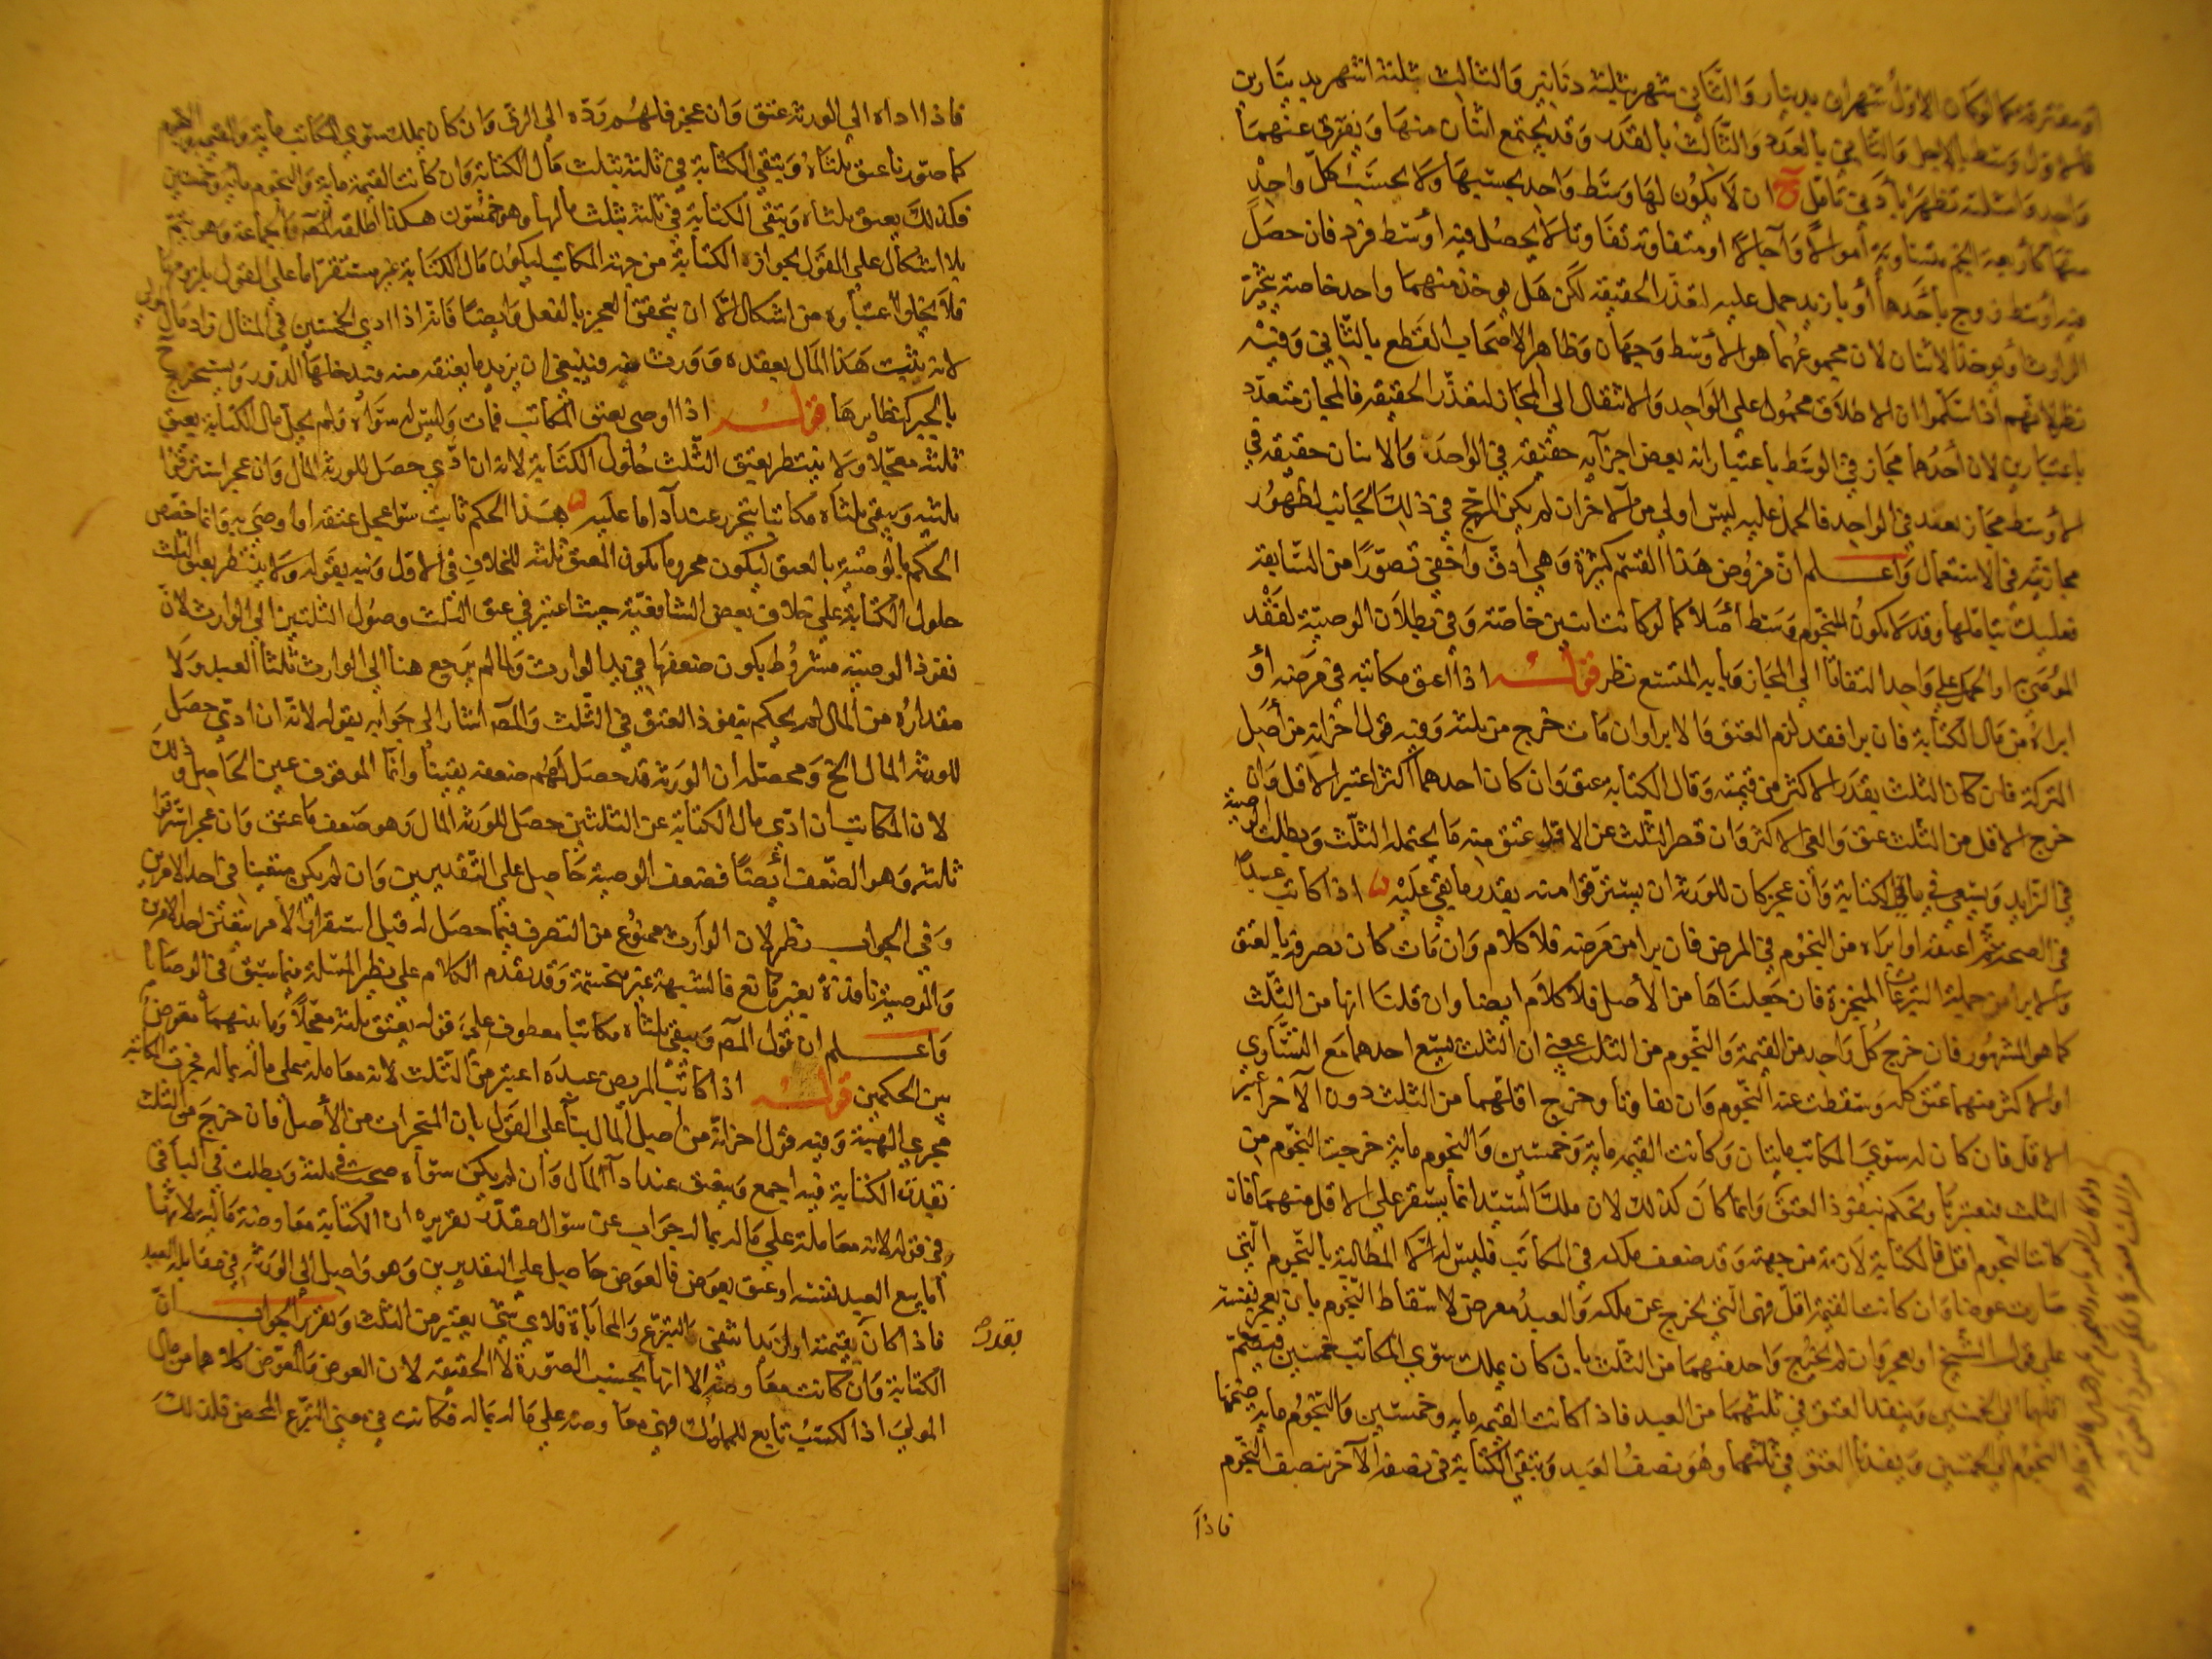 او مفترقة كما لو كان الاول شهران بدينار والثاني شهر بثلثة دنانير والثالث ثلثة اشهر بدينارين
فالاول وسط بالاجل والثاني بالعدد والثالث بالقدر وقد يجتمع اثنان منها ويفترق عنهما
واحد وامثلته تظهر بادنى تامل ان لا يكون لها وسط واحد بحسبها ولا بحسب كل واحد
منها كاربعة انجم متساوية اموالا واجالا او متفاوتة تفاوتا لا يحصل فيه اوسط فرد فان حصل
فيه اوسط زوج باحدها او بازيد حمل عليه لتعذر الحقيقة لكن هل يوخذ منهما واحد خاصة بخيرة
الوارث او يوخذ الاثنان لان مجموعهما هو الاوسط وجهان وظاهر الاصحاب القطع بالثاني وفيه
نظر لانهم اذا سلموا ان الاطلاق محمول على الواحد والانتقال الى المجاز لتعذر الحقيقة فالمجاز متعدد
باعتبارين لان احدهما مجاز في الوسط باعتبار انه بعض اجزايه حقيقة في الوحدة والاثنان حقيقة في
الاوسط مجاز بعدد في الواحد فالحمل عليه ليس اولى من الاخر ان لم يكن المرجح في ذلك الجانب لظهور
مجازيته في الاستعمال واعلم ان فروض هذا القسم كثيرة وهي ادق واخفى تصورا من السابقة
فعليك بتاملها وقد لا يكون للنجوم وسط اصلا كما لو كانت اثنين خاصة وفي بطلان الوصية لفقد
الموصى به او الحمل على واحد التفاتا الى المجاز وبابه المتسع نظر قوله اذا اعتق مكاتبه في مرضه او
ابراه من مال الكتابة فان برا فقد لزم العتق والابرا وان مات خرج من ثلثه وفيه قول اخر انه من اصل
التركة فان كان الثلث بقدر الاكثر من قيمته ومال الكتابة عتق وان كان احدهما اكثر اعتبر الاقل وان
خرج الاقل من الثلث عتق والغي الاكثر وان قصر الثلث عن الاقل عتق منه ما يحتمله الثلث وبطلت الوصية
في الزايد ويسعى في باقي الكتابة وان عجز كان للورثة ان يسترقوا منه بقدر ما بقي عليه اذا كاتب عبدا
في الصحة ثم اعتقه او ابراه من النجوم في المرض فان برا من مرضه فلا كلام وان مات كان تصرفه بالعتق
والابرا من جملة التبرعات المنجزة فان جعلناها من الاصل فلا كلام ايضا وان قلنا انها من الثلث
كما هو المشهور فان خرج كل واحد من القيمة والنجوم من الثلث بمعنى ان الثلث يسع احدهما مع التساوي
او الاكثر منهما عتق كله وسقطت عنه النجوم وان تفاوتا وخرج اقلهما من الثلث دون الاخر اعتبر
الاقل فان كان له سوى المكاتب مايتان وكانت القيمة ماية وخمسين والنجوم ماية خرجت النجوم من
الثلث فنعتبرها ونحكم بنفوذ العتق وانما كان كذلك لان ملك السيد انما يستقر على الاقل منهما فان
كانت النجوم اقل فالكتابة لازمة من جهته وقد ضعف ملكه في المكاتب فليس له الا المطالبة بالنجوم التي
صارت عوضا وان كانت القيمة اقل فهي التي تخرج عن ملكه والعبد معرض لاسقاط النجوم بان يعجز نفسه
على قول الشيخ او يعجز وان لم يخرج واحد منهما من الثلث بان كان يملك سوى المكاتب خمسين فيضم
اقلهما الى الخمسين وينفذ العتق في ثلثهما من العبد فاذا كانت القيمة ماية وخمسين والنجوم ماية ضممنا
النجوم الى الخمسين وينفذ العتق في ثلثهما وهو نصف العبد وتبقى الكتابة في نصفه الاخر بنصف النجوم
فاذا
فاذا اداه الى الورثة عتق وان عجز فلهم رده الى الرق وان كان يملك سوى المكاتب ماية والقيمة والنجوم
كما صورنا عتق ثلثاه وتبقى الكتابة في ثلثه بثلث مال الكتابة وان كانت القيمة ماية والنجوم ماية وخمسين
فكذلك يعتق ثلثاه وتبقى الكتابة في ثلثه بثلث مالها وهو خمسون هكذا اطلقه المص والجماعة وهو يتم
بلا اشكال على القول بجواز الكتابة من جهة المكاتب ليكون مال الكتابة غير مستقر اما على القول بلزومها
فلا يخلو اعتباره من اشكال الا ان يتحقق العجز بالفعل وايضا فانه اذا ادى الخمسين في المثال زاد مال المولى
لانه يثبت هذا المال بعقده وورث عنه فينبغي ان يزيد ما يعتقه منه فيدخلها الدور ويستخرج ح
بالجبر كنظايرها قوله اذا اوصى بعتق المكاتب فمات وليس له سواه ولم يحل مال الكتابة يعتق
ثلثه معجلا ولا ينتظر بعتق الثلث حلول الكتابة لانه ان ادى حصل للورثة المال وان عجز استرقوا
ثلثيه ويبقى ثلثاه مكاتبا يتحرر عند اداما عليه هذا الحكم ثابت سوا عجل عتقه اما وصى به وانما خص
الحكم بالوصية بالعتق ليكون محروما بكون المعتق ثلثه للخلاف في الاول ونبه بقوله ولا ينتظر بعتق الثلث
حلول الكتابة على خلاف بعض الشافعية حيث اعتبر في عتق الثلث وصول الثلثين الى الوارث لان
نفوذ الوصية مشروط بكون ضعفها في يد الوارث ولما لم يرجع هنا الى الوارث ثلثا العبد ولا
مقداره من المال لم يحكم بنفوذ العتق في الثلث والمص اشار الى جوابه بقوله لانه ان ادى حصل
للورثة المال الخ ومحصله ان الورثة قد حصل لهم ضعفه يقينا وانما الموقوف عين الحاصل وذلك
لان المكاتب ان ادى مال الكتابة عن الثلثين حصل للورثة المال وهو ضعف ما عتق وان عجز استرقوا
ثلثيه وهو الضعف ايضا فضعف الوصية حاصل على التقديرين وان لم يكن متعينا في احد الامرين
وفي الجواب نظر لان الوارث ممنوع من التصرف فيما حصل له قبل استقرار الامر بتعين احد الامرين
والوصية نافذة بغير مانع فالشبهة غير منحسمة وقد تقدم الكلام على نظير المسئلة فيما سبق في الوصايا
واعلم ان قول المص ويبقى ثلثاه مكاتبا معطوف على قوله يعتق ثلثه معجلا وما بينهما معترض
بين الحكمين قوله اذا كاتب المريض عبده اعتبر من الثلث لانه معاملة على ماله بماله فجرت المكاتبة
مجرى الهبة وفيه قول اخر انه من اصل المال بنا على القول بان المنجزات من الاصل فان خرج من الثلث
نفذت الكتابة فيه اجمع وينعتق عند ادا المال وان لم يكن سواه صحت في ثلثه وبطلت في الباقي
في قوله لانه معاملة على ماله بماله جواب عن سؤال مقدر تقريره ان الكتابة معاوضة مالية لانها
اما بيع العبد نفسه او عتق بعوض فالعوض حاصل على التقديرين وهو واصل الى الورثة في مقابلة العبد
فاذا كان بقيمته او ازيد انتفى التبرع والمحاباة فلاي شي يعتبر من الثلث وتقرير الجواب ان
الكتابة وان كانت معاوضة الا انها بحسب الصورة لا الحقيقة لان العوض والمعوض كلاهما من مال
المولى اذ الكسب تابع للمملوك فهي معاوضة على ماله بماله فكانت في معنى التبرع المحض فلذلك